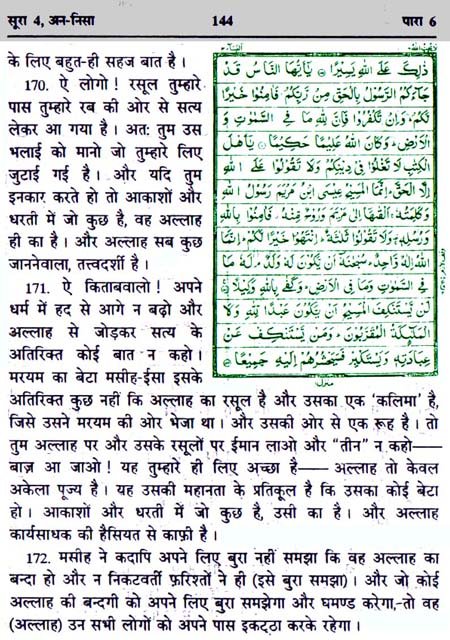 सूरा 4, अन-निसा 144 पारा 6
के लिए बहुत-ही सहज बात है।
170. ऐ लोगो! रसूल तुम्हारे
पास तुम्हारे रब की ओर से सत्य
लेकर आ गया है। अतः तुम उस
भलाई को मानो जो तुम्हारे लिए
जुटाई गई है। और यदि तुम
इनकार करते हो तो आकाशों और
धरती में जो कुछ है, वह अल्लाह
ही का है। और अल्लाह सब कुछ
जाननेवाला, तत्त्वदर्शी है।
171. ऐ किताबवालो! अपने
धर्म में हद से आगे न बढ़ो और
अल्लाह से जोड़कर सत्य के
अतिरिक्त कोई बात न कहो।
मरयम का बेटा मसीह-ईसा इसके
ذٰلِكَ عَلَى اللهِ يَسِيْرًا ۞ يٰۤاَيُّهَا النَّاسُ قَدْ
جَآءَكُمُ الرَّسُوْلُ بِالْحَقِّ مِنْ رَّبِّكُمْ فَاٰمِنُوْا خَيْرًا
لَّكُمْ ؕ وَاِنْ تَكْفُرُوْا فَاِنَّ لِلّٰهِ مَا فِى السَّمٰوٰتِ وَ
الْاَرْضِ ؕ وَكَانَ اللهُ عَلِيْمًا حَكِيْمًا ۞ يٰۤاَهْلَ
الْكِتٰبِ لَا تَغْلُوْا فِىْ دِيْنِكُمْ وَلَا تَقُوْلُوْا عَلَى اللهِ
اِلَّا الْحَقَّ ؕ اِنَّمَا الْمَسِيْحُ عِيْسَى ابْنُ مَرْيَمَ رَسُوْلُ اللهِ
وَكَلِمَتُهٗ ۚ اَلْقٰهَاۤ اِلٰى مَرْيَمَ وَرُوْحٌ مِّنْهُ ۫ فَاٰمِنُوْا بِاللهِ
وَرُسُلِهٖ ۚ وَلَا تَقُوْلُوْا ثَلٰثَةٌ ؕ اِنْتَهُوْا خَيْرًا لَّكُمْ ؕ اِنَّمَا
اللهُ اِلٰهٌ وَّاحِدٌ ؕ سُبْحٰنَهٗۤ اَنْ يَّكُوْنَ لَهٗ وَلَدٌ ۘ لَهٗ مَا
فِى السَّمٰوٰتِ وَمَا فِى الْاَرْضِ ؕ وَكَفٰى بِاللهِ وَكِيْلًا ۞
لَنْ يَّسْتَنْكِفَ الْمَسِيْحُ اَنْ يَّكُوْنَ عَبْدًا لِّلّٰهِ وَلَا
الْمَلٰٓئِكَةُ الْمُقَرَّبُوْنَ ؕ وَمَنْ يَّسْتَنْكِفْ عَنْ
عِبَادَتِهٖ وَيَسْتَكْبِرْ فَسَيَحْشُرُهُمْ اِلَيْهِ جَمِيْعًا ۞
अतिरिक्त कुछ नहीं कि अल्लाह का रसूल है और उसका एक ‘कलिमा’ है,
जिसे उसने मरयम की ओर भेजा था। और उसकी ओर से एक रूह है। तो
तुम अल्लाह पर और उसके रसूलों पर ईमान लाओ और “तीन” न कहो—
बाज़ आ जाओ! यह तुम्हारे ही लिए अच्छा है— अल्लाह तो केवल
अकेला पूज्य है। यह उसकी महानता के प्रतिकूल है कि उसका कोई बेटा
हो। आकाशों और धरती में जो कुछ है, उसी का है। और अल्लाह
कार्यसाधक की हैसियत से काफ़ी है।
172. मसीह ने कदापि अपने लिए बुरा नहीं समझा कि वह अल्लाह का
बन्दा हो और न निकटवर्ती फ़रिश्तों ने ही (इसे बुरा समझा)। और जो कोई
अल्लाह की बन्दगी को अपने लिए बुरा समझेगा और घमण्ड करेगा,-तो वह
(अल्लाह) उन सभी लोगों को अपने पास इकट्ठा करके रहेगा।